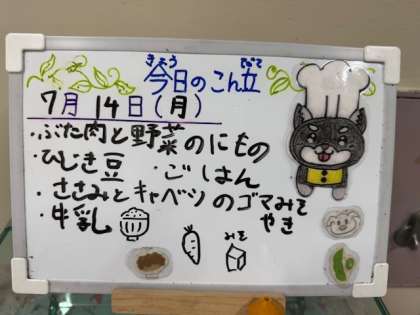 今日のこん立
きょう だて
7月14日(月)
・ぶた肉と野菜のにもの
・ひじき豆 ・ごはん
・ささみとキャベツのゴマみそやき
・牛乳
みそ